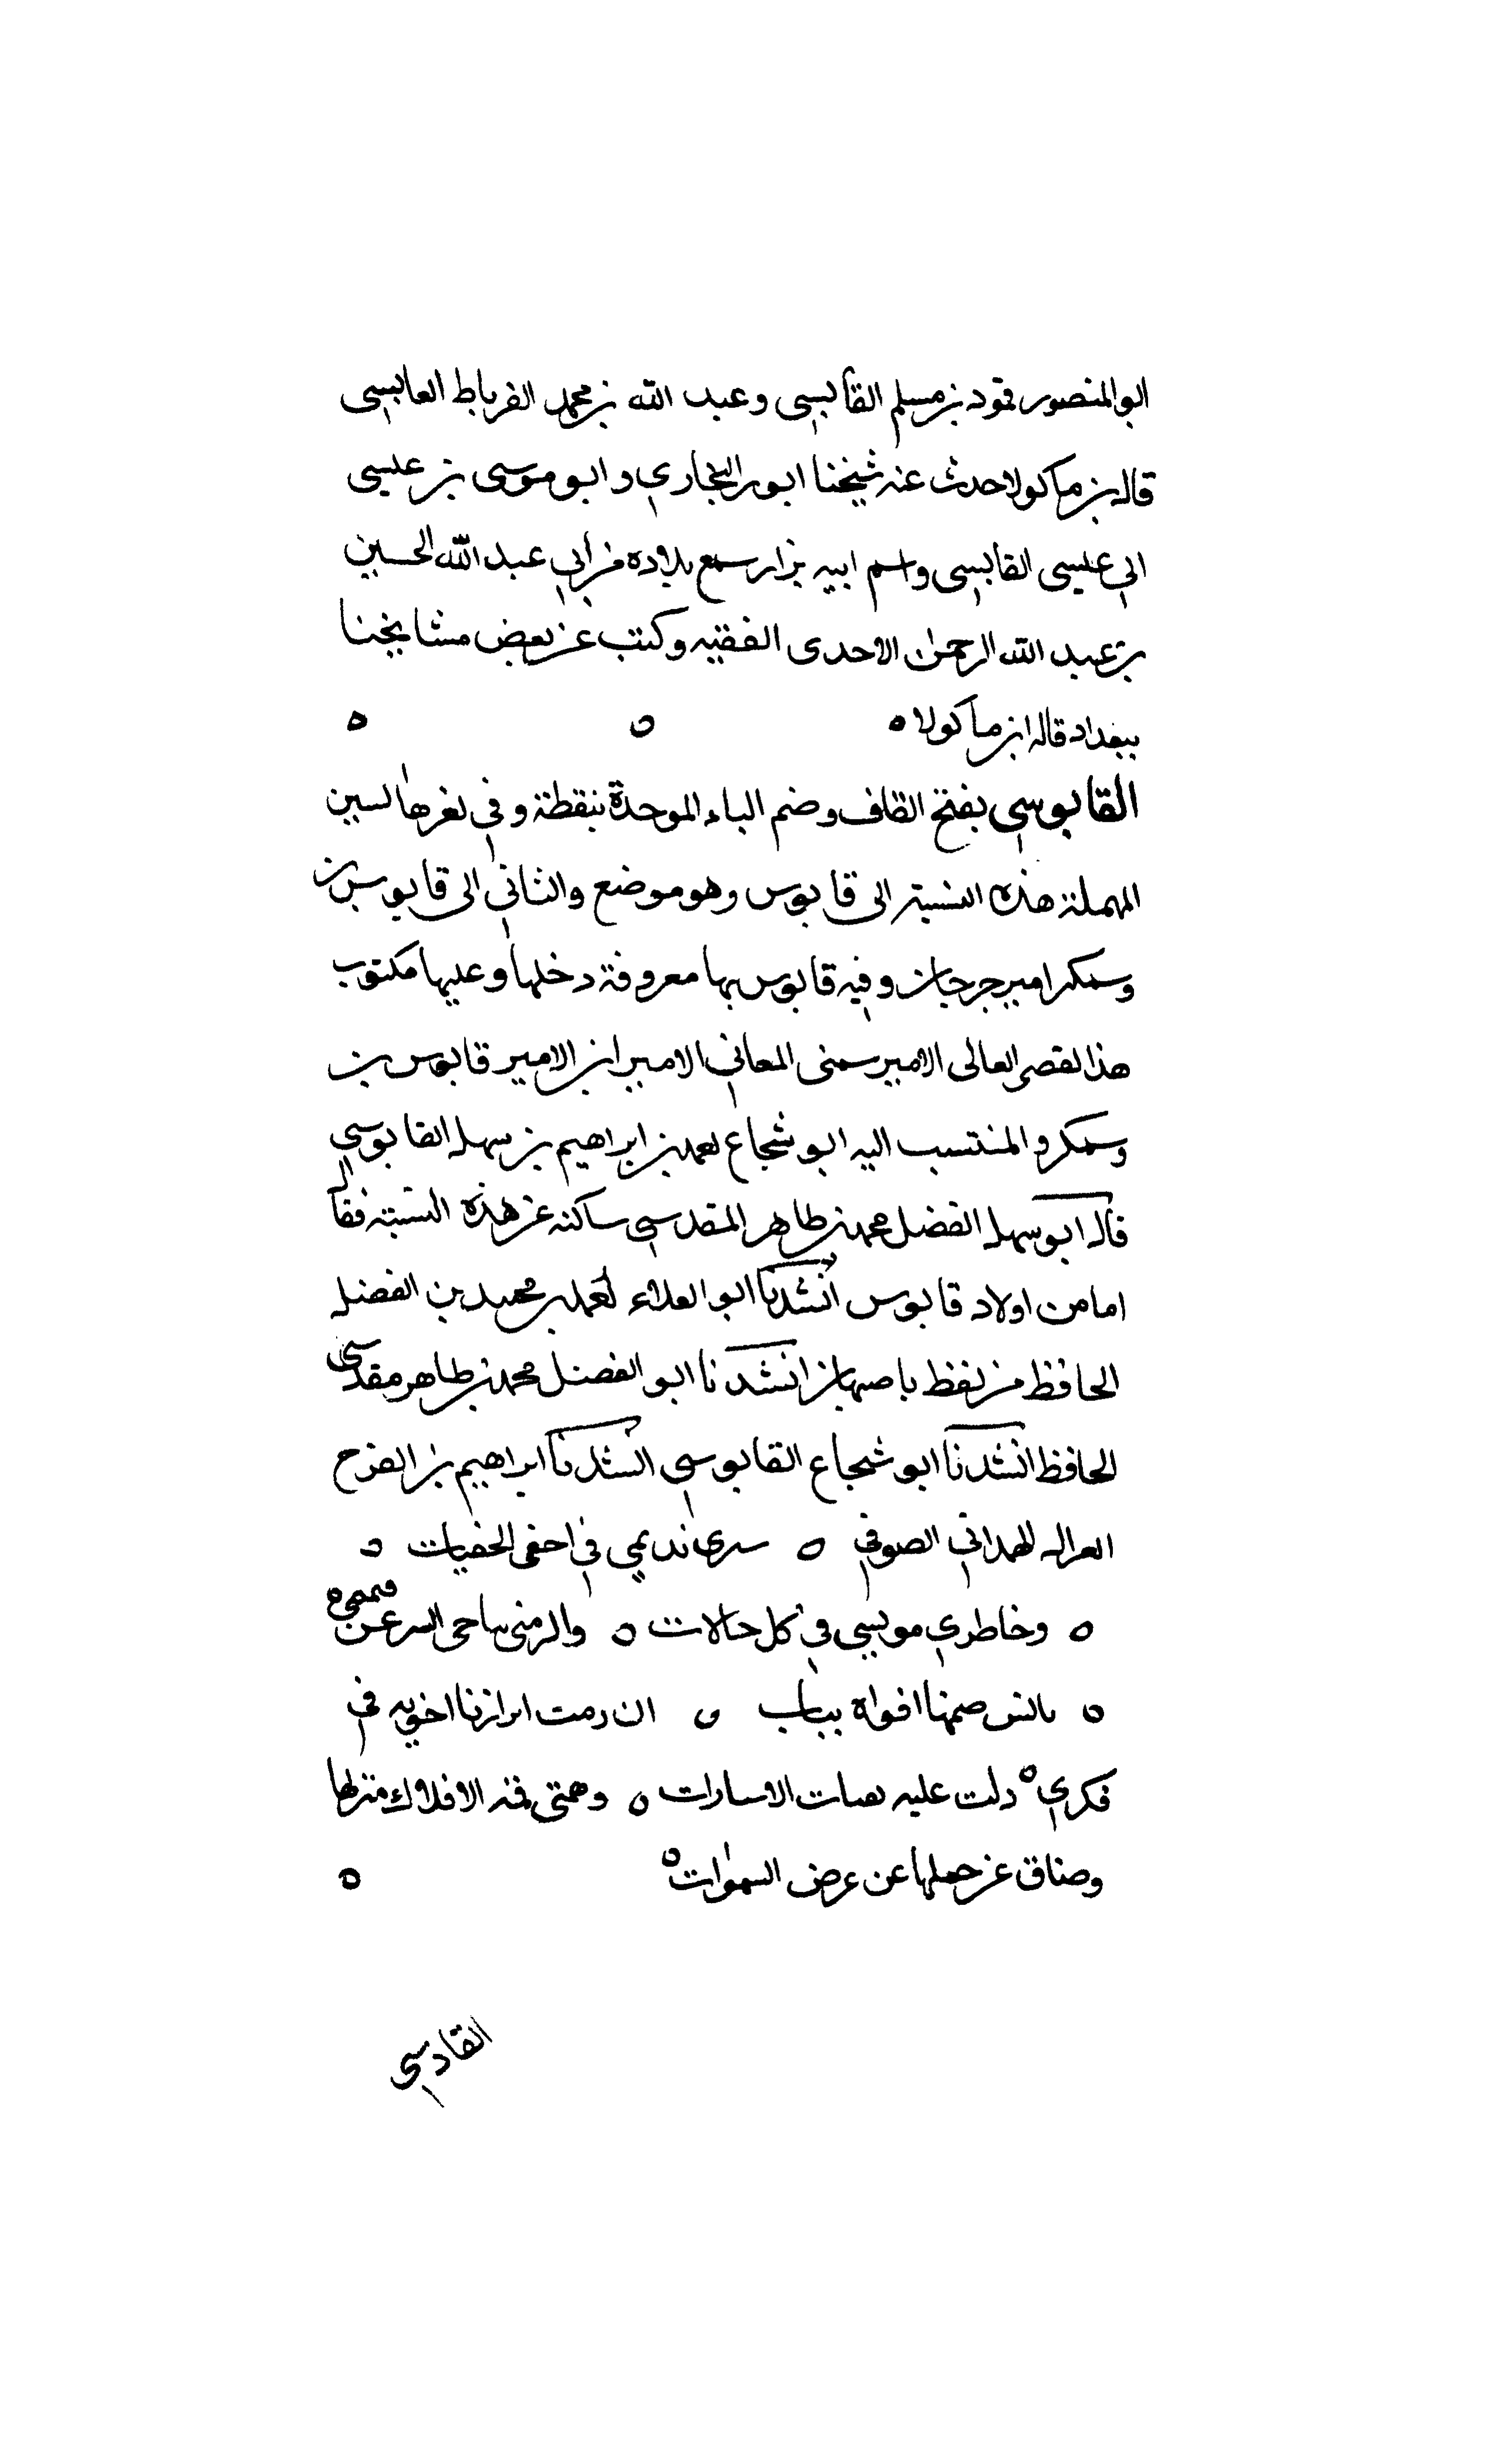 ابو المنصور قود بن مسلم القابسى وعبد الله بن محمد الفرباط القابسى
قال بن ماكولا حدث عنه شيخنا ابو البخارى و ابو موسى بن عيسى
ابى عيسى القابسى واسم ابيه نزار سمع ببلاده من ابى عبد الله الحسين
بن عبد الله الرحمن الاحدى الفقيه وكتب عن بعض مشايخنا
ببغداد قاله ابن ماكولا ه ه ه
القابوسى بفتح القاف وضم الباء الموحدة بنقطة وفى لغرها لسين
المهملة هذه النسبة الى قابوس وهو موضع والثانى الى قابوس بن
وسمكر امير جرجان وفيه قابوس بها معروفة دخلها وعليها مكتوب
هذا لقصر العالى الامير سمنى المعانى الامير ابن الامير قابوس بن
وسمكر والمنتسب اليه ابو شجاع بن ابراهيم بن سهل القابوسى
قال ابو سهل الفضل محمد بن طاهر المقدسى سالته عن هذه النسبة فقال
اما من اولاد قابوس انشدنا ابو العلاء محمد بن الفضل
الحافظ من لفظ باصبهان انشدنا ابو الفضل محمد بن طاهر مقدسى
الحافظ انشدنا ابو شجاع القابوسى انشدنا ابراهيم بن الفرح
الهمدانى الصوفى ه سرى نديمى فى احفى الحفيات ه
ه وخاطرى مونسى فى كل حالات ه والرمنى ساحى السر عن
ه صمنها افواه ه ان رمت فى
فكرى ه دلت عليه الاسارات ه وهمتى الافلاك منزلها
وضاق عن حملها عن عرض السموات ه ه
القادسى